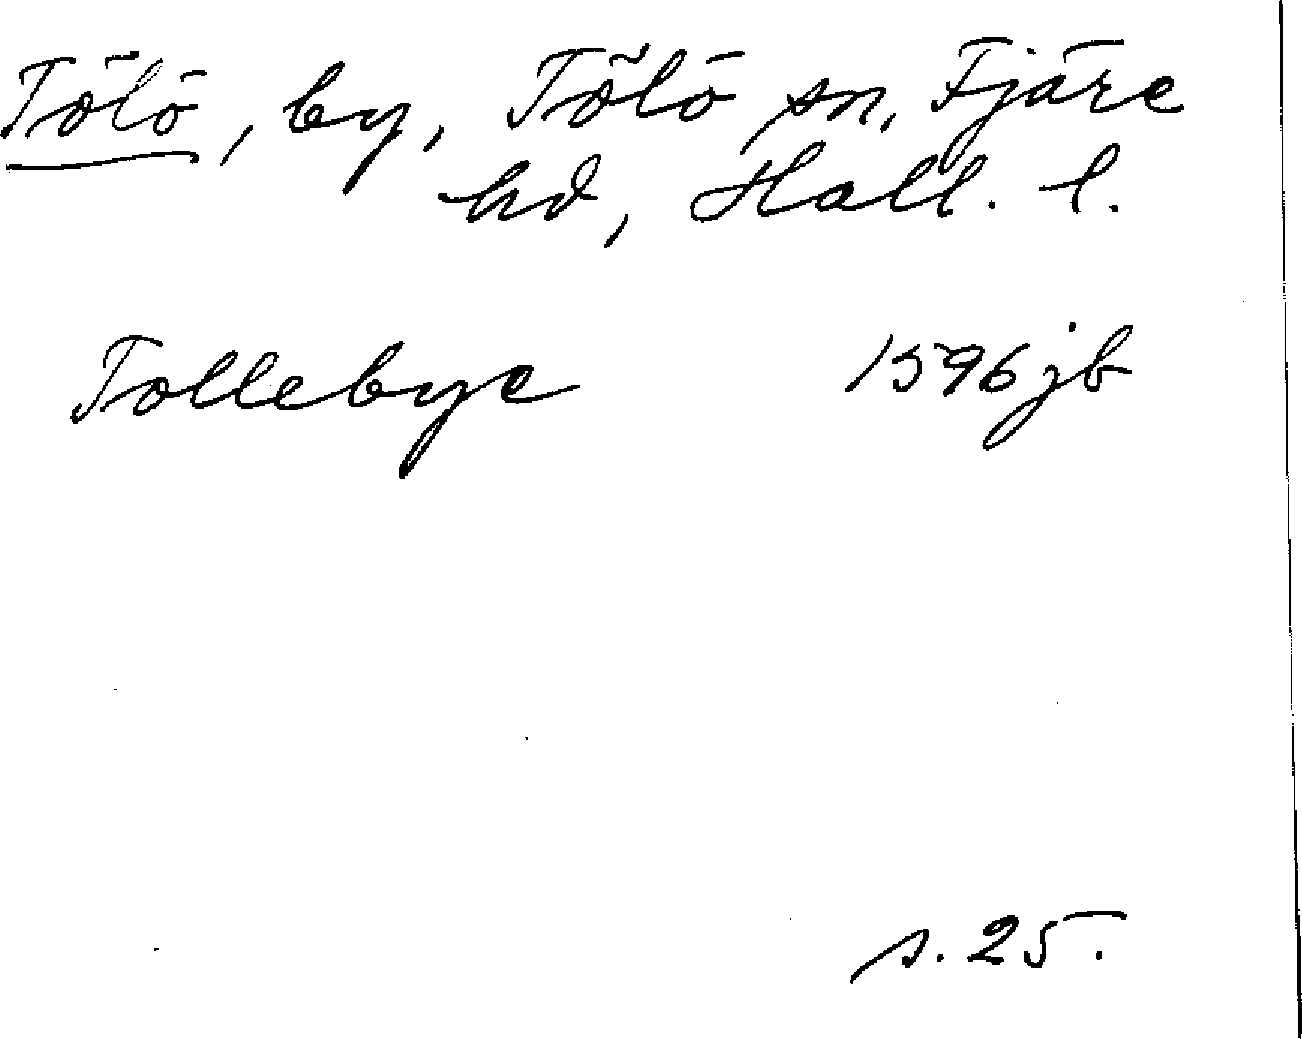 Tölö, by, Tölö sn, Fjäre
hd, Hall. l.
Tollebye 1596 jb
s. 25.